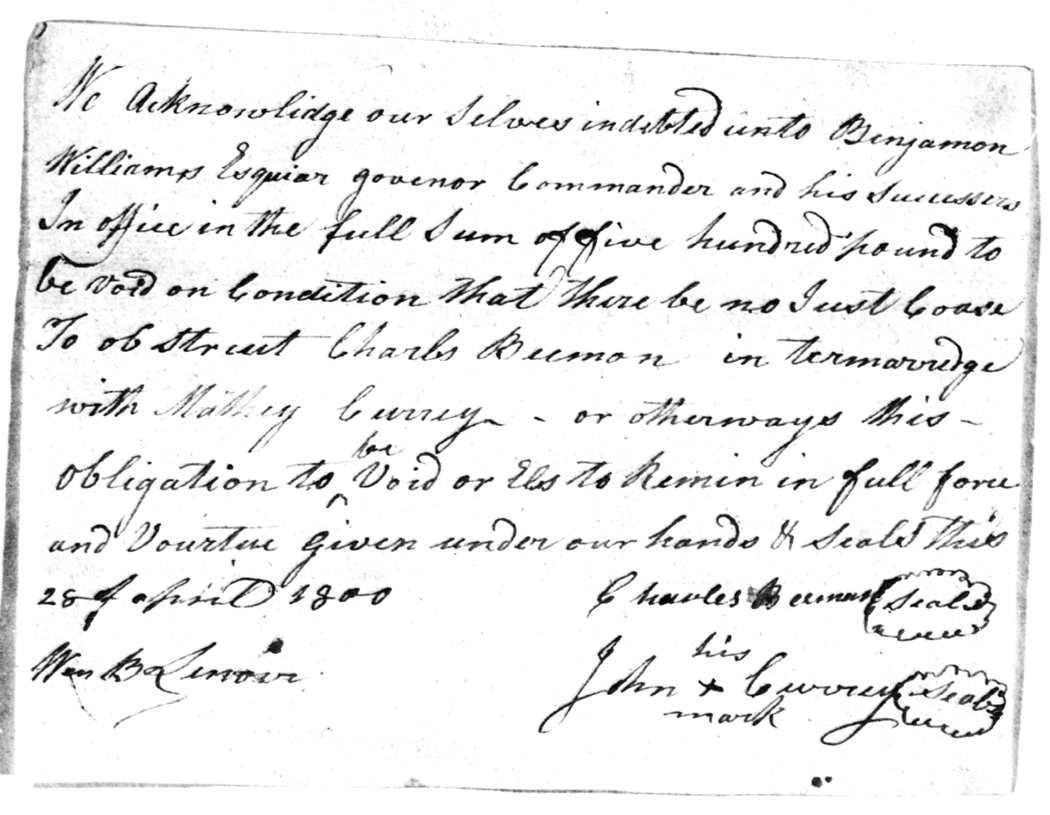 We Acknowlidge our Selves indebted unto Benjamon
Williams Esquiar govenor Commander and his Sucussers
In office in the full Sum of five hundred pound to
be Void on Condition that there be no Just Coase
To obstruct Charls Beemon in termarredge
with Mathey Currey - or otherways this -
obligation to be Void or Els to Remin in full force
and Vourtue Given under our hands & Seals this
28 of april 1800 Charles Beeman Seal
Wm B Lenoir his
John x Currey Seal
mark